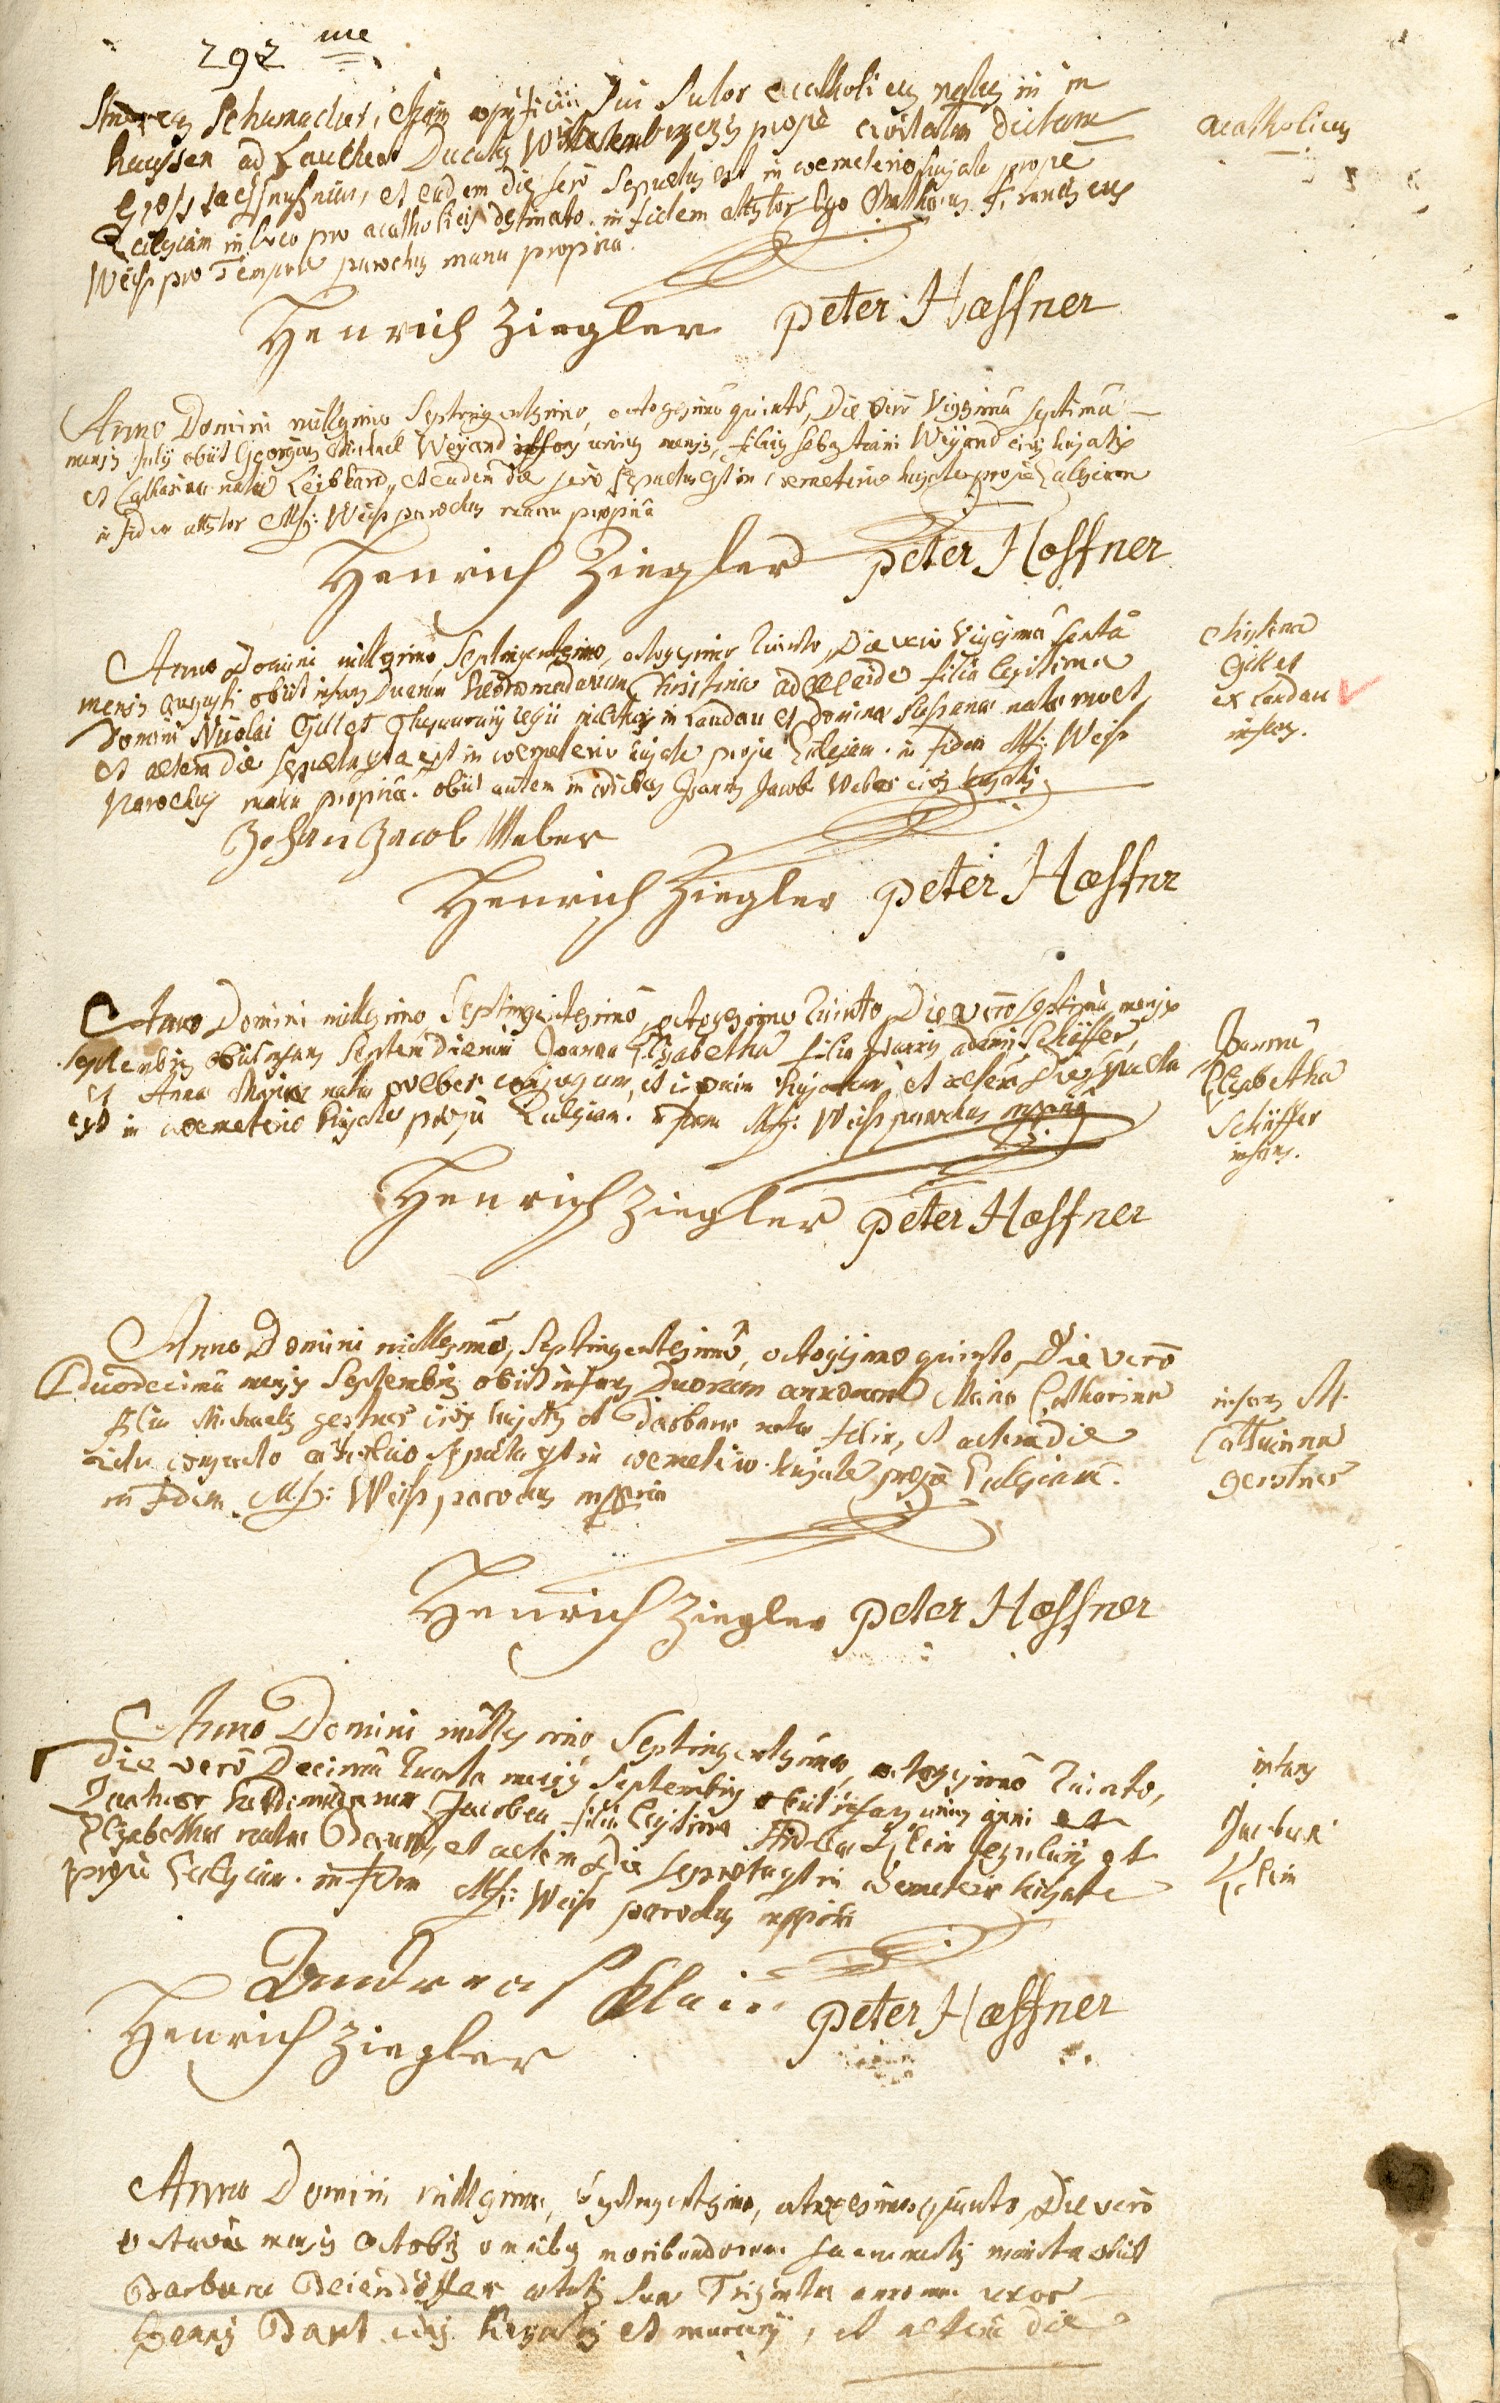 292 me
Schumacher, opificii sui sutor acatholicus natus in
haussen ad Ducatus Wirtembergensis prope civitatem dictam
et eadem die sero sepultus est in coemeterio hujate prope
Ecclesiam in loco pro acatholicis destinato. in fidem attestor Ego Mathaeus Franciscus
Weiss pro Tempore parochus manu propria.
acatholicus
Henrich Ziegler Peter Haeffner
Anno Domini millesimo, Septingentesimo, octogesimo quinto, Die vero Vigesima septima
mensis July obiit Georgius Michael Weyand infans unius mensis, filius sebastiani Weyand civis hujatis
et Catharinae natae Leibhard, et eadem die sero sepultus est in coemeterio hujate prope Ecclesiam
in fidem attestor M: f: Weiss parochus manu propria
Henrich Ziegler Peter Haffner
Anno Domini millesimo, Septingentesimo, octogesimo Quinto, Die vero Vigesima sexta
mensis augusti obiit infans Duarum hebdomadarum Christina adeleide filia legitima
Domini Nicolai Gillet regii militis in Landau et Domina Susanna nata moet,
et altera die sepulta est in coemeterio hujate prope Ecclesiam. in fidem M: f: Weiss
Parochus manu propria. obiit autem in aedibus Joannis Jacobi Weber civis hujatis
Christina
Gillet
ex Landau
infans.
Johan Jacob Weber
Henrich Ziegler Peter Haeffner
Anno Domini millesimo Septingentesimo, octogesimo Quinto, Die vero septima mensis
Septembris obiit infans septem dierum Joanna Elisabetha filia Joannis adami Schäffer,
et Anna Maria nata Weber conjugum, et civium hujatum, et altera die sepulta
est in coemeterio hujate prope Ecclesiam. in fidem M: f: Weiss parochus mppria
Joanna
Elisabetha
Schäffer
infans.
Henrich Ziegler Peter Haeffner
Anno Domini millesimo, Septingentesimo, octogesimo quinto, Die vero
Duodecima mensis Septembris obiit infans Duorum annorum Maria Catharina
filia Michaelis gerstner civis hujatis et Barbara nata felix, et altera die
sepulta est in coemeterio hujate prope Ecclesiam.
in fidem M: f: Weiss parochus mppria
infans M.
Catharina
gerstner
Henrich Ziegler Peter Haeffner
Anno Domini millesimo Septingentesimo, octogesimo Quinto,
Die vero Decima Quarta mensis Septembris obiit infans unius anni et
Quatuor hebdomadarum Jacobea filia legitima Andreae Klein et
Elisabethae natae Baum, et altera die sepulta est in coemeterio hujate
prope Ecclesiam. in fidem M: f: Weiss parochus mppria
infans
Jacobea
Klein
Andreas Klein
Henrich Ziegler Peter Haeffner
Anno Domini millesimo, Septingentesimo, octogesimo quinto, Die vero
octava mensis Octobris omnibus moribundorum sacramentis munita obiit
Barbara Beiendöffer aetatis suae Triginta annorum uxor
Joannis Bart civis hujatis et murarii, et altera die